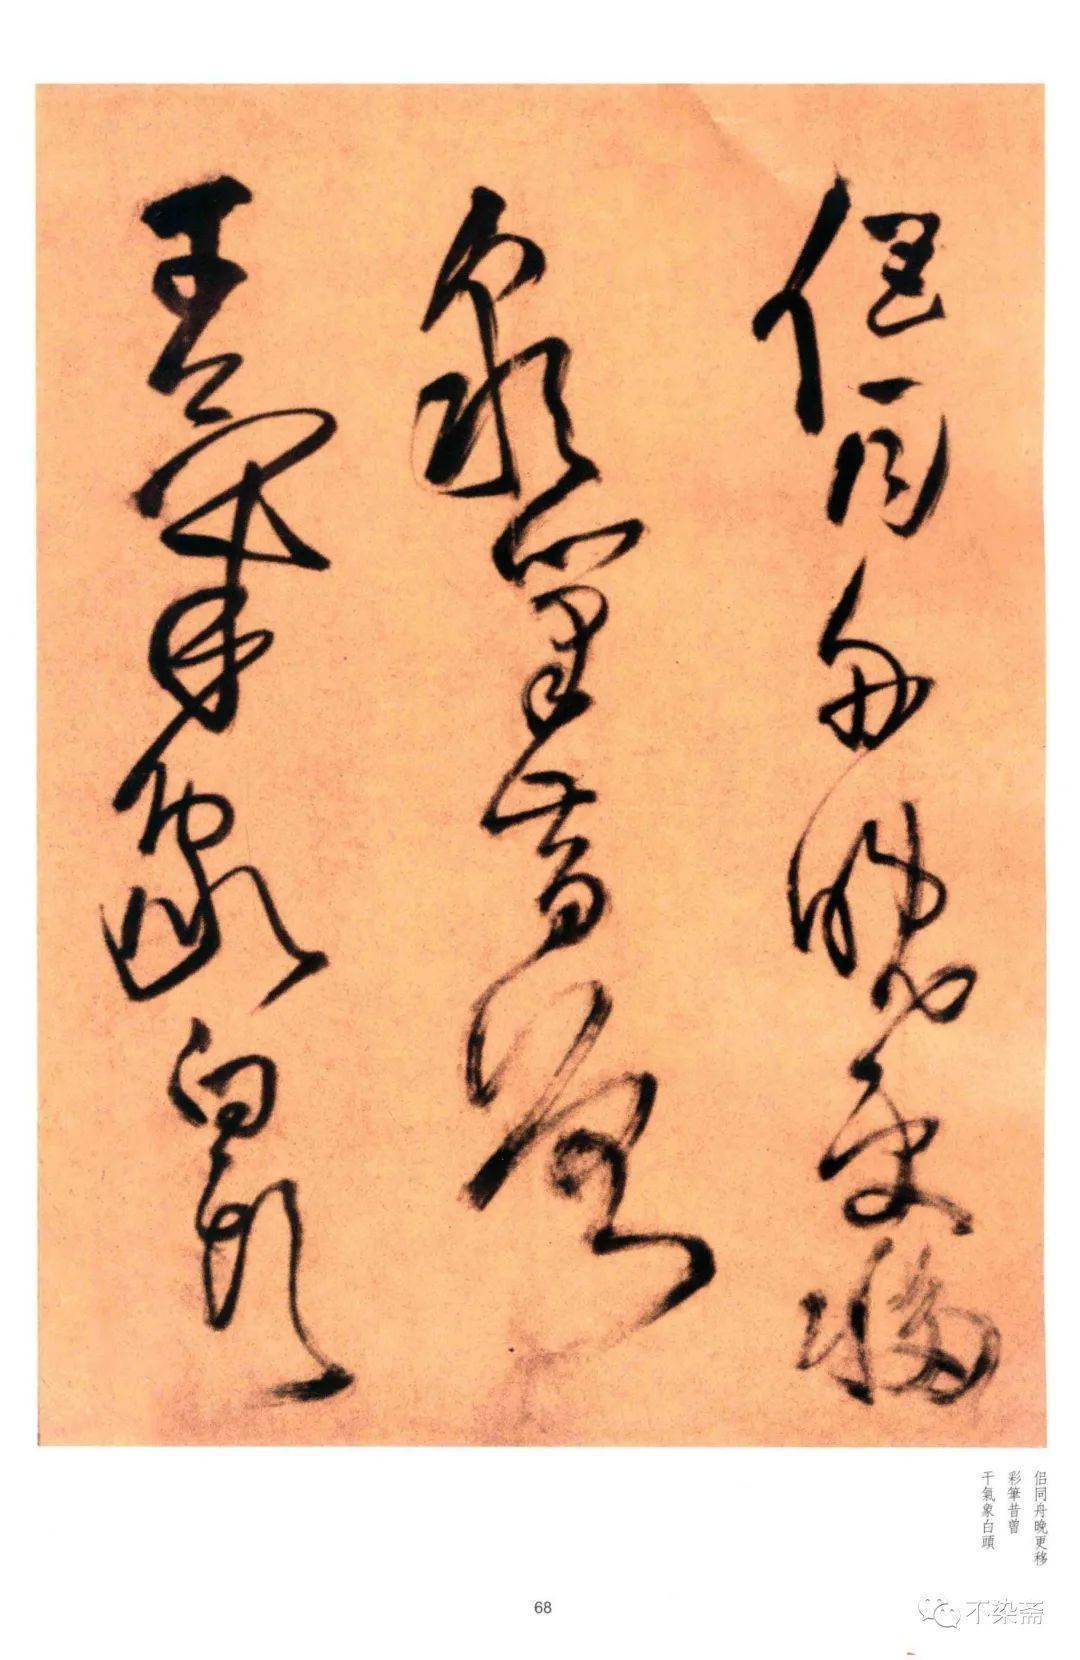 侣同舟晚更移
彩筆昔曾
干氣象白頭
侣同舟晚更移
彩筆昔曾
干氣象白頭
68
不染斋